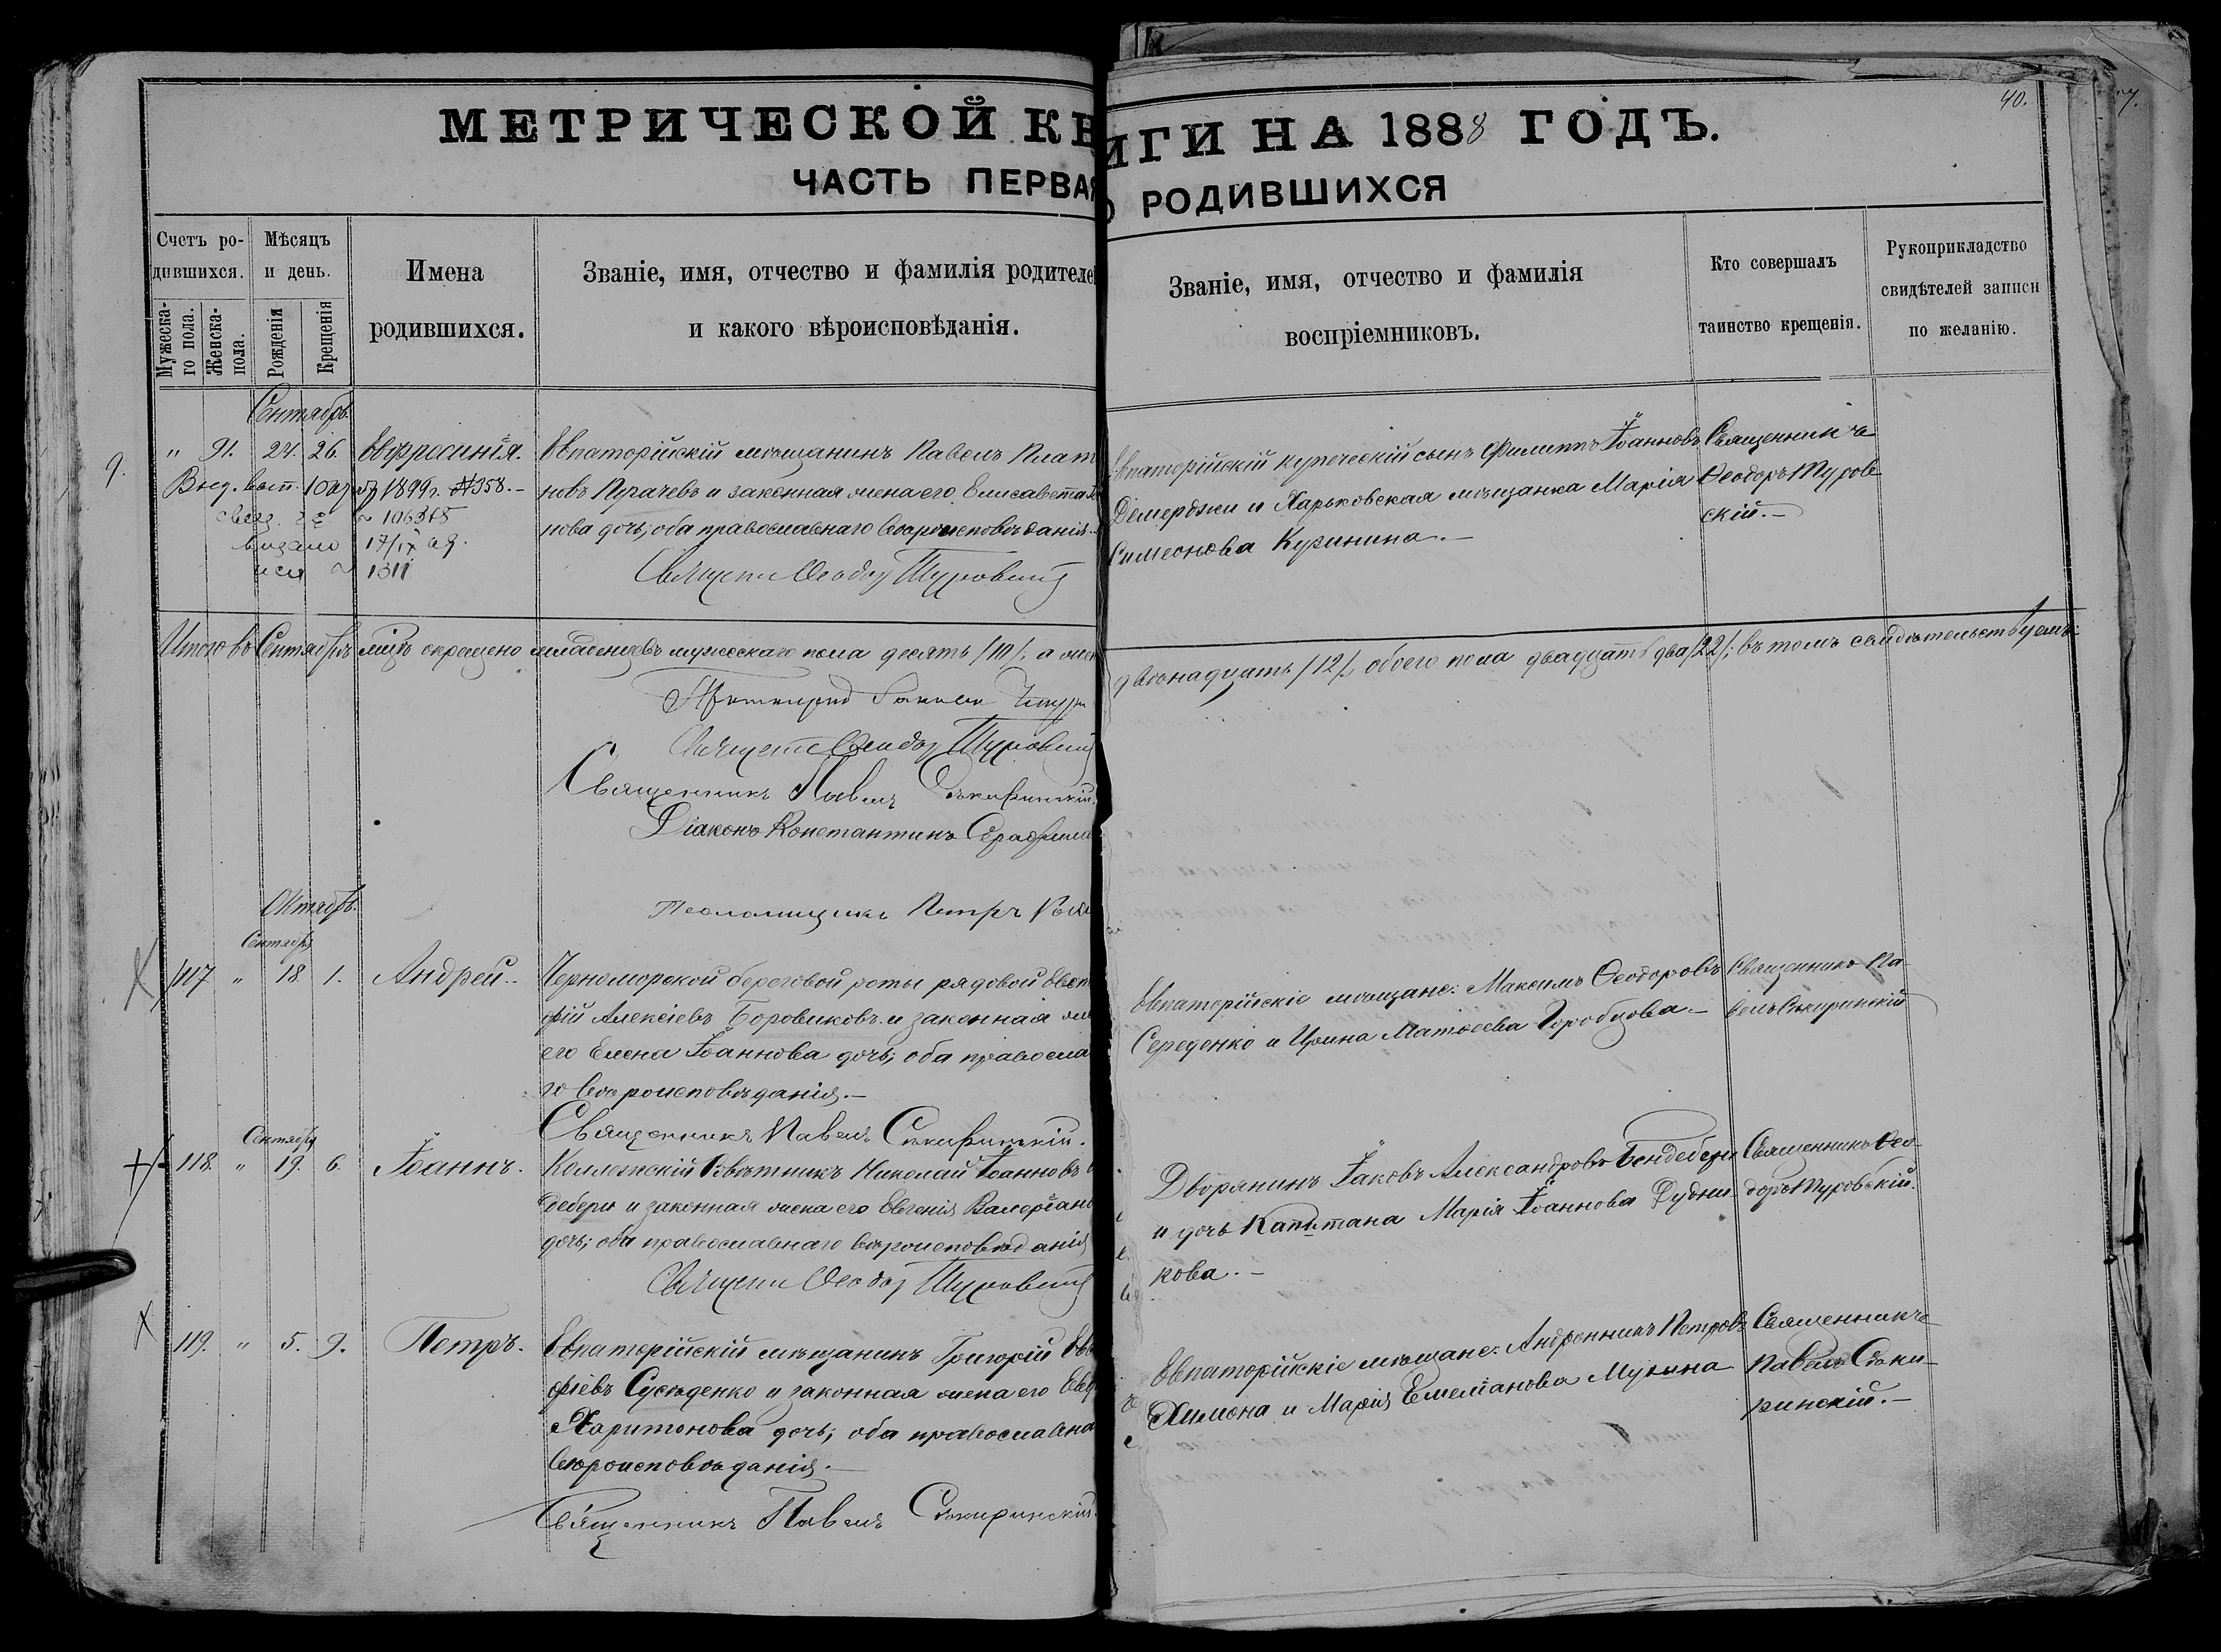 МЕТРИЧЕСКОЙ КНИГИ НА 1888 ГОДЪ.
40.
7.
ЧАСТЬ ПЕРВАЯ
О РОДИВШИХСЯ
Счетъ родившихся.
Мужеска-
го пола.
Женска-
пола.
Мѣсяцъ
и день.
Рожденія
Крещенія
Имена
родившихся.
Званіе, имя, отчество и фамилія родителей
и какого вѣроисповѣданія.
Званіе, имя, отчество и фамилія
воспріемниковъ.
Кто совершалъ
таинство крещенія.
Рукоприкладство
свидѣтелей записи
по желанію.
Сентябрь.
9.
" 91. 24. 26. Евфросинія.
Евпаторійскій мѣщанинъ Павелъ Плат
новъ Пугачевъ и законная жена его Елисавета
нова дочь; оба православнаго вѣроисповѣданія.
Священ Ѳеодор Туровскій
Выд. 1899 г. №358.
106375
17/IX
1311
Евпаторійскій купеческій сынъ Филиппъ Іоанновъ
Демерджи и Харьковская мѣщанка Марія
Симеонова Куринина.
Священникъ
Ѳеодоръ Туров-
скій.
Итого въ Сентябрѣ мцѣ окрещено младенцевъ мужескаго пола десять /10/, а жен
двѣнадцать /12/, обоего пола двадцать два /22/; въ томъ свидѣтельствуемъ:
Священ Ѳеодор Туровскій
Священникъ Павелъ Сѣкиринскій.
Діаконъ Константинъ Серафимо
Псаломщикъ Петръ
Октябрь.
Сентября
117 " 18 1. Андрей.
Черноморской береговой роты рядовой Евст
фій Алексіевъ Боровиковъ и законная же
его Елена Іоаннова дочь; оба правосла
го вѣроисповѣданія.
Священникъ Павелъ Сѣкиринскій.
Евпаторійскіе мѣщане: Максимъ Ѳеодоровъ
Середенко и Ирина Матѳеева Горобцова.
Священникъ Па-
велъ Сѣкиринскій
Сентября
118. " 19. 6. Іоаннъ.
Коллежскій Совѣтникъ Николай Іоанновъ
дебери и законная жена его Евгенія Валеріано
дочь; оба православнаго вѣроисповѣданія
Священ Ѳеодор Туровскій
Дворянинъ Іаковъ Александровъ Бендебери
и дочь Капитана Марія Іоаннова Дудни-
кова.
Священникъ Ѳео-
доръ Туровскій.
119. " 5. 9. Петръ.
Евпаторійскій мѣщанинъ Григорій Ев
фіевъ Сусѣденко и законная жена его Евд
Харитонова дочь; оба православна
вѣроисповѣданія.
Священникъ Павелъ Сѣкиринскій.
Евпаторійскіе мѣщане: Андронникъ Петровъ
Химона и Марія Емеліанова Мухина
Священникъ
Павелъ Сѣки-
ринскій.